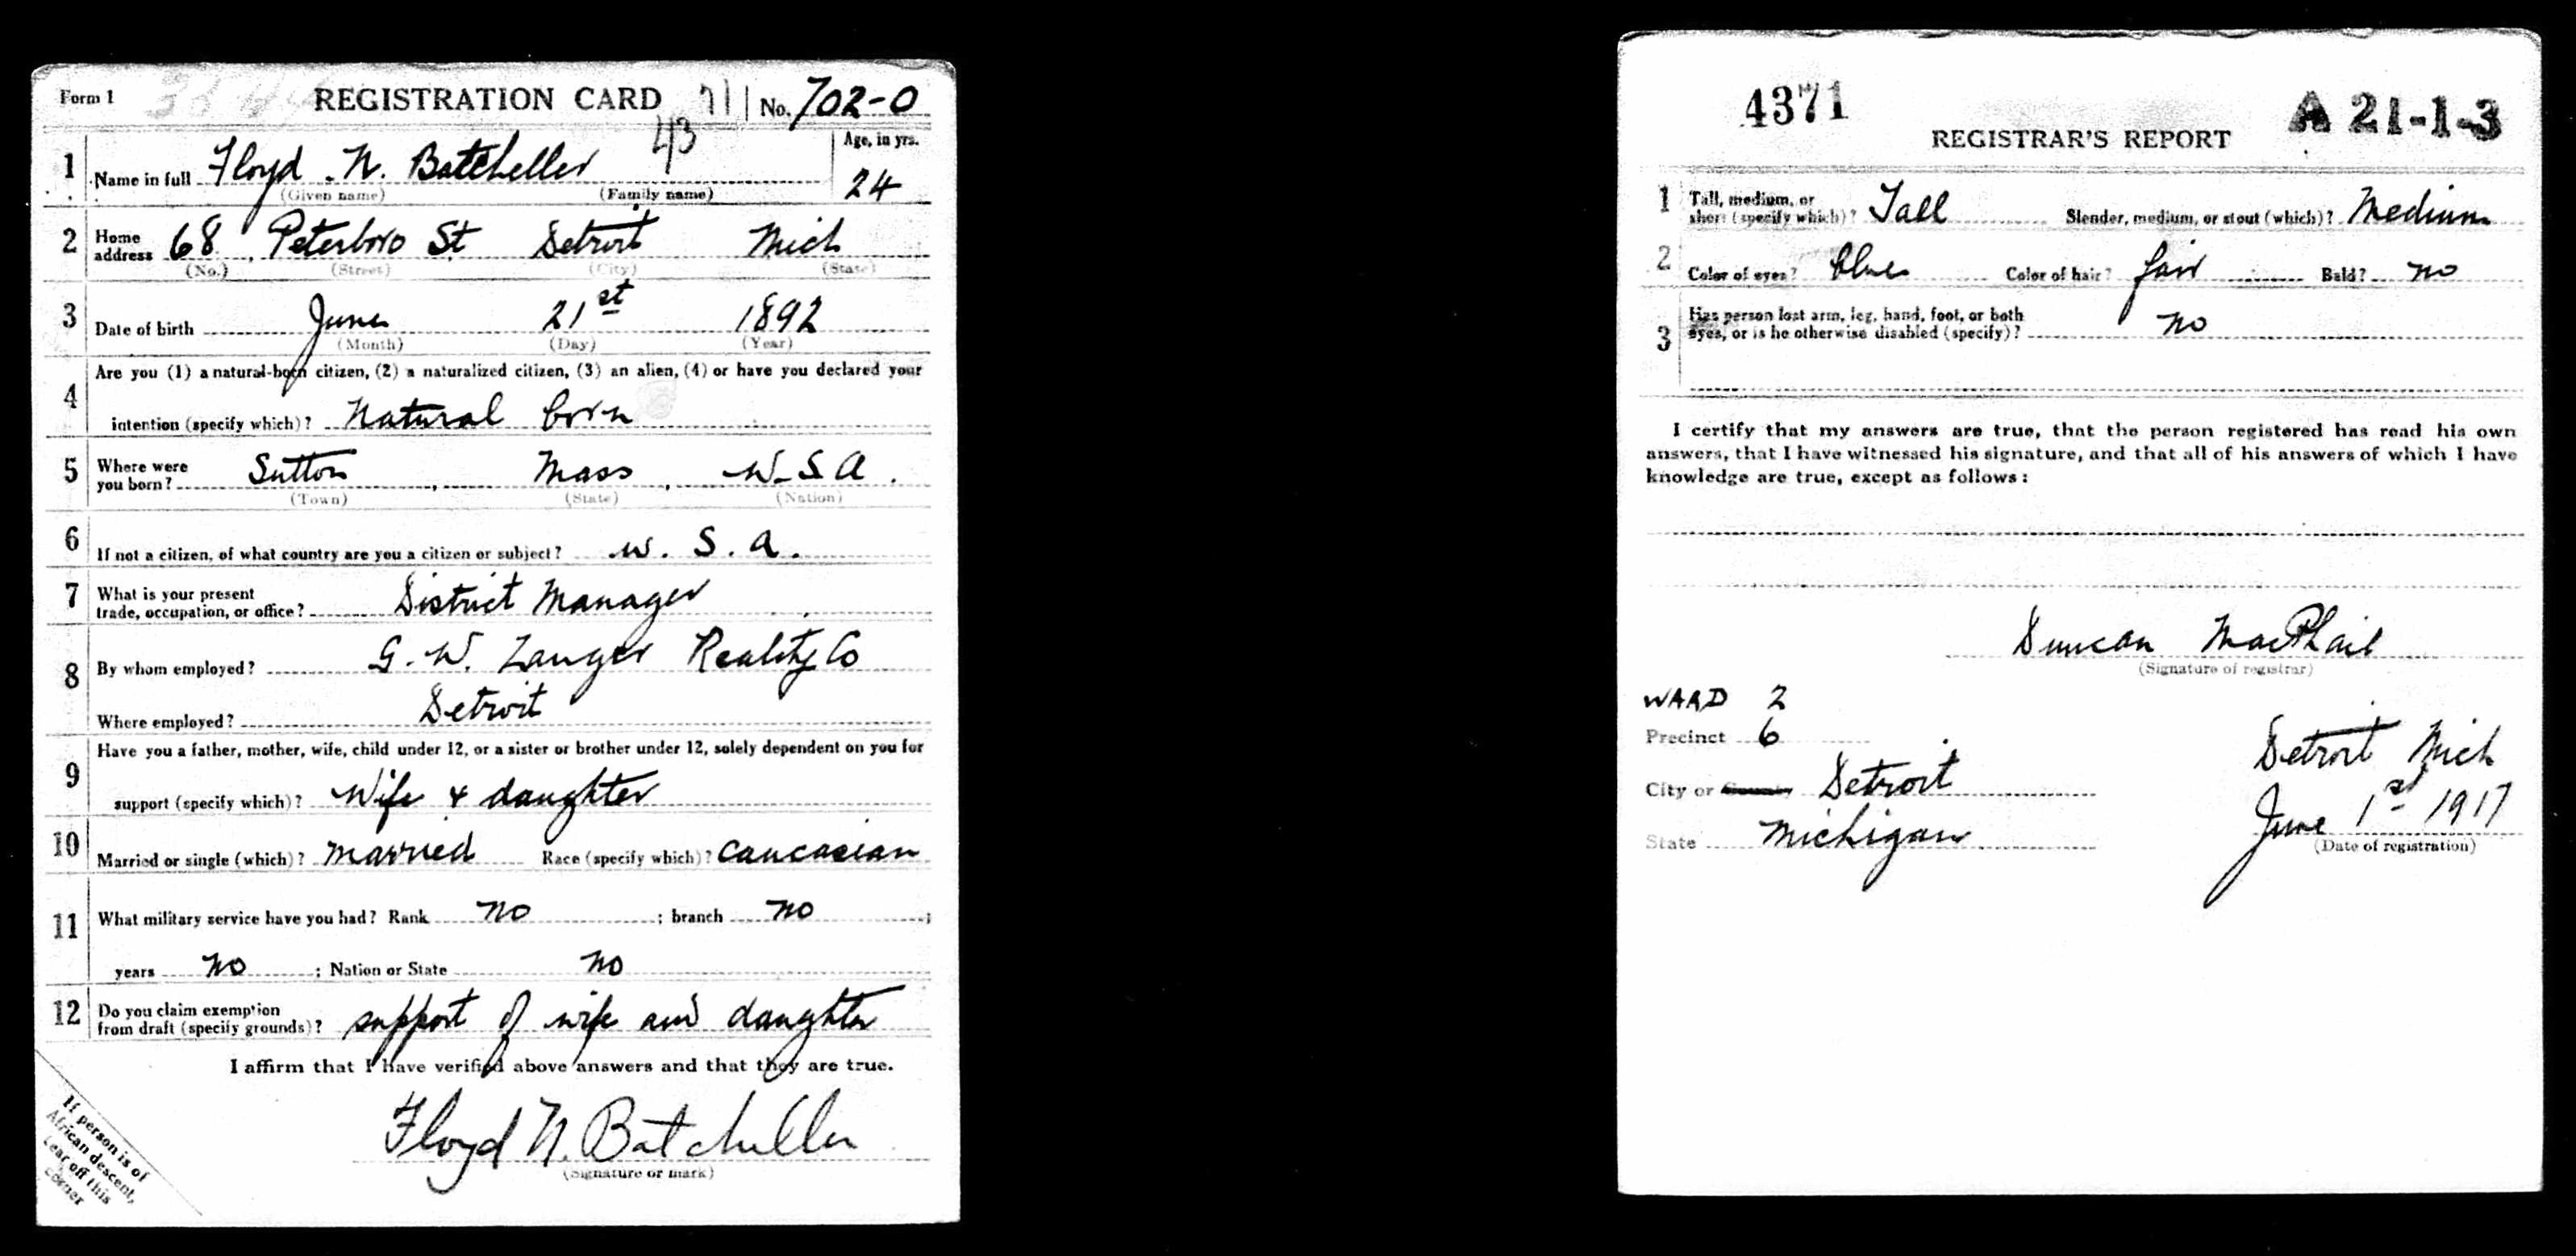 Form 1 REGISTRATION CARD 71 No. 702-0
43
1 Name in full Floyd N. Batcheller Age, in yrs. 24
(Given name) (Family name)
2 Home address 68 Peterboro St Detroit Mich
(No.) (Street) (City) (State)
3 Date of birth June 21st 1892
(Month) (Day) (Year)
4 Are you (1) a natural-born citizen, (2) a naturalized citizen, (3) an alien, (4) or have you declared your
intention (specify which)? Natural born
5 Where were you born? Sutton, Mass, U.S.A.
(Town) (State) (Nation)
6 If not a citizen, of what country are you a citizen or subject? U. S. A.
7 What is your present
trade, occupation, or office? District Manager
8 By whom employed? G. W. Zanger Reality Co
Where employed? Detroit
9 Have you a father, mother, wife, child under 12, or a sister or brother under 12, solely dependent on you for
support (specify which)? Wife & daughter
10 Married or single (which)? married Race (specify which)? Caucasian
11 What military service have you had? Rank no ; branch no ;
years no ; Nation or State no
12 Do you claim exemption
from draft (specify grounds)? support of wife and daughter
I affirm that I have verified above answers and that they are true.
Floyd N. Batcheller
(Signature or mark)
If person is of
African descent,
tear off this
corner
4371 A 21-1-3
REGISTRAR'S REPORT
1 Tall, medium, or
short (specify which)? Tall Slender, medium, or stout (which)? Medium
2 Color of eyes? blue Color of hair? fair Bald? no
3 Has person lost arm, leg, hand, foot, or both
eyes, or is he otherwise disabled (specify)? no
I certify that my answers are true, that the person registered has read his own
answers, that I have witnessed his signature, and that all of his answers of which I have
knowledge are true, except as follows:
Duncan MacPhail
(Signature of registrar)
WARD 2
Precinct 6
City or County Detroit
State Michigan
Detroit Mich
June 1st 1917
(Date of registration)